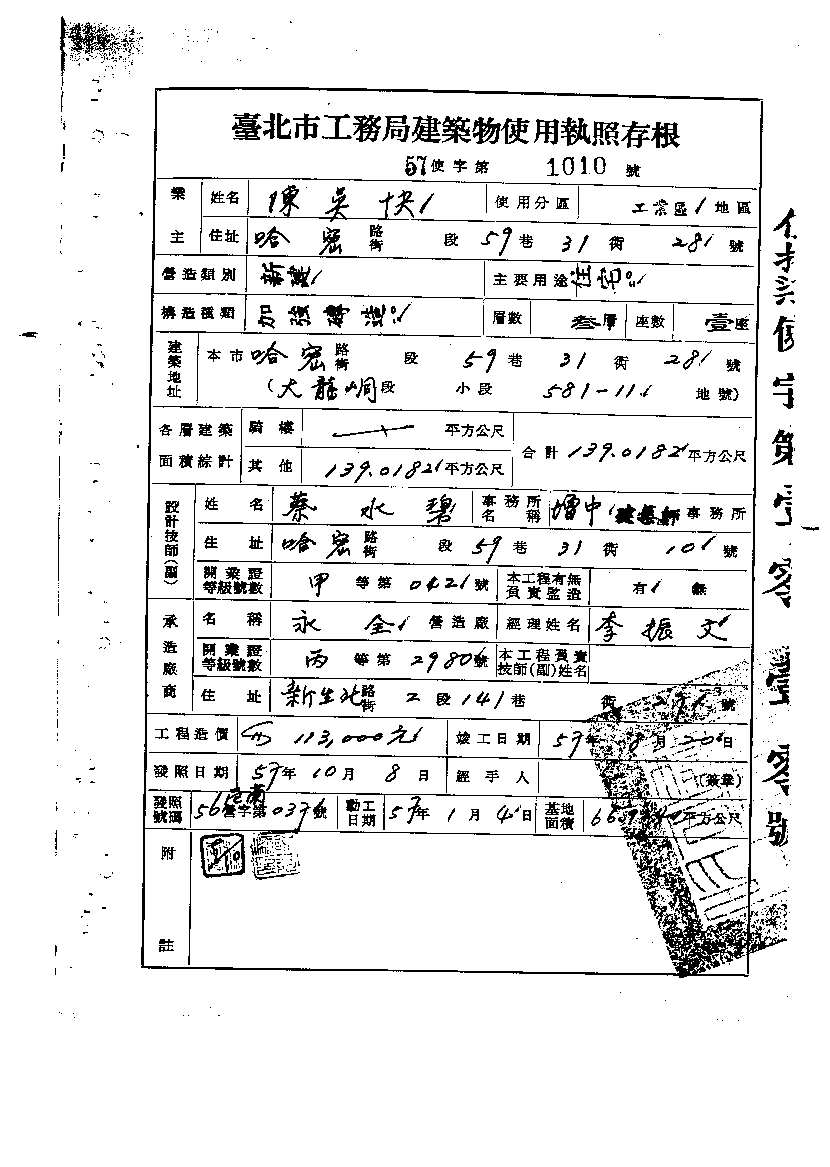 臺北市工務局建築物使用執照存根
57使字第 1010 號
業主 姓名 陳吳快 使用分區 工業區 地區
住址 哈密路街 段 59巷 31衖 28號
營造類別 新建 主要用途 住宅
構造種類 加強磚造 層數 叁層 座數 壹座
建築地址 本市哈密路街 段 59巷 31衖 28號
(大龍峒段 小段 581-11 地號)
各層建築面積綜計 騎樓 平方公尺 合計 139.0182平方公尺
其他 139.0182平方公尺
設計技師(副) 姓名 蔡水碧 事務所名稱 增中建築師事務所
住址 哈密路街 段 59巷 31衖 10號
開業證等級號數 甲等第0421號 本工程有無負責監造 有 無
承造廠商 名稱 永全 營造廠 經理姓名 李振文
開業證等級號數 丙等第2980號 本工程負責技師(副)姓名
住址 新生北路街 2段141巷 衖 號
工程造價 113,000元 竣工日期 57年8月20日
發照日期 57年10月8日 經手人 (簽章)
發照號碼 56營字第037號 動工日期 57年1月4日 基地面積 平方公尺
附註
使字第壹零壹零號